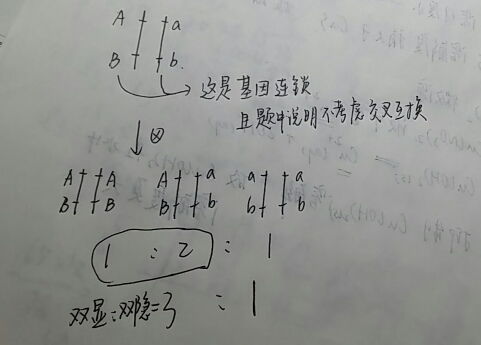 A a
B b
这是基因连锁
且题中说明不考虑交叉互换
↓⊗
A A A a a a
B B B b b b
1 : 2 : 1
双显:双隐=3 : 1